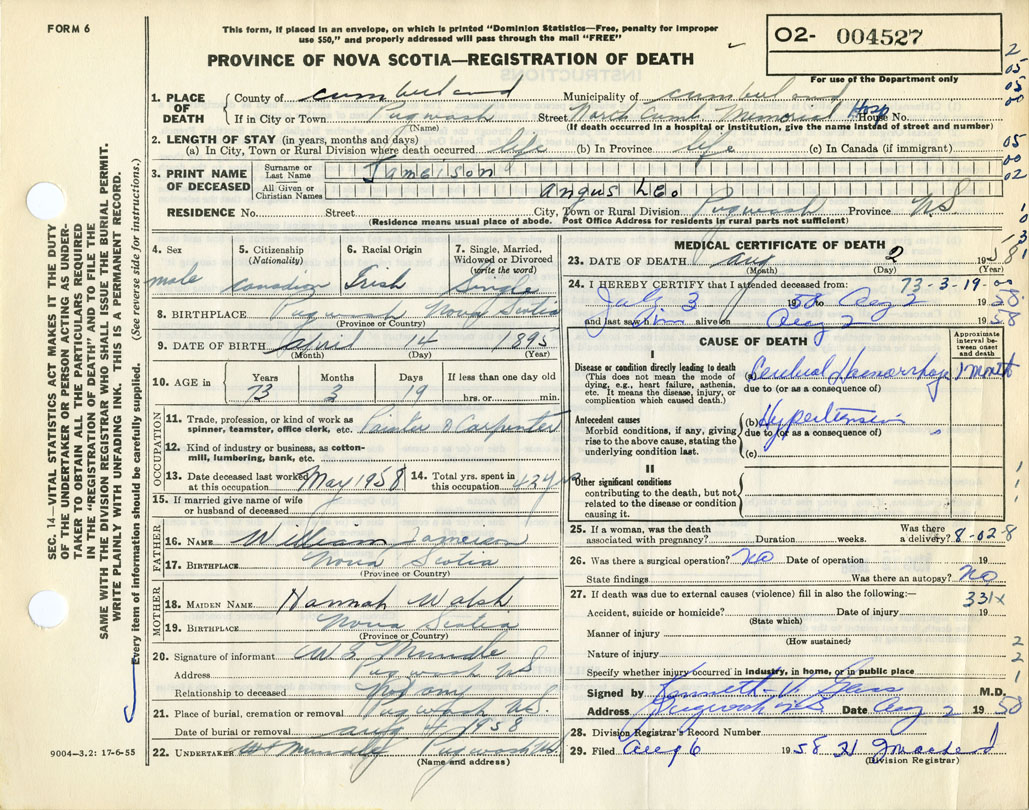 FORM 6
This form, if placed in an envelope, on which is printed "Dominion Statistics—Free, penalty for improper
use $50," and properly addressed will pass through the mail "FREE"
O2- 004527
For use of the Department only
PROVINCE OF NOVA SCOTIA—REGISTRATION OF DEATH
1. PLACE OF DEATH { County of Cumberland Municipality of Cumberland
If in City or Town Pugwash Street North Cumb Memorial Hosp House No.
(Name) (If death occurred in a hospital or institution, give the name instead of street and number)
2. LENGTH OF STAY (in years, months and days)
(a) In City, Town or Rural Division where death occurred life (b) In Province life (c) In Canada (if immigrant)
3. PRINT NAME OF DECEASED { Surname or Last Name Jameison
All Given or Christian Names Angus Leo
RESIDENCE No. Street City, Town or Rural Division Pugwash Province N.S.
(Residence means usual place of abode. Post Office Address for residents in rural parts not sufficient)
4. Sex male
5. Citizenship (Nationality) Canadian
6. Racial Origin Irish
7. Single, Married, Widowed or Divorced (write the word) Single
8. BIRTHPLACE Pugwash Nova Scotia
(Province or Country)
9. DATE OF BIRTH April 14 1895
(Month) (Day) (Year)
10. AGE in Years Months Days If less than one day old
73 3 19 hrs. or min.
OCCUPATION
11. Trade, profession, or kind of work as spinner, teamster, office clerk, etc. Painter & Carpenter
12. Kind of industry or business, as cotton-mill, lumbering, bank, etc.
13. Date deceased last worked at this occupation May 1958
14. Total yrs. spent in this occupation 43 yrs
15. If married give name of wife or husband of deceased
FATHER
16. NAME William Jameison
17. BIRTHPLACE Nova Scotia
(Province or Country)
MOTHER
18. MAIDEN NAME Hannah Walsh
19. BIRTHPLACE Nova Scotia
(Province or Country)
20. Signature of informant Mundle
Address Pugwash NS
Relationship to deceased not any
21. Place of burial, cremation or removal Pugwash N.S.
Date of burial or removal Aug 4/1958
22. UNDERTAKER Mundle Pugwash NS
(Name and address)
MEDICAL CERTIFICATE OF DEATH
23. DATE OF DEATH Aug 2 1958
(Month) (Day) (Year)
24. I HEREBY CERTIFY that I attended deceased from: 73-3-19-00
July 3 1958 to Aug 2 1958
and last saw him alive on Aug 2 1958
CAUSE OF DEATH
Approximate interval between onset and death
I
Disease or condition directly leading to death
(This does not mean the mode of dying, e.g., heart failure, asthenia, etc. It means the disease, injury, or complication which caused death.)
(a) Cerebral Haemorrhage 1 month
due to (or as a consequence of)
Antecedent causes
Morbid conditions, if any, giving rise to the above cause, stating the underlying condition last.
(b) Hypertension
due to (or as a consequence of)
(c)
II
Other significant conditions
contributing to the death, but not related to the disease or condition causing it.
25. If a woman, was the death associated with pregnancy? Duration weeks. Was there a delivery? 8-02-8
26. Was there a surgical operation? NO Date of operation 19
State findings Was there an autopsy? NO
27. If death was due to external causes (violence) fill in also the following:— 331x
Accident, suicide or homicide? Date of injury 19
(State which)
Manner of injury
(How sustained)
Nature of injury
Specify whether injury occurred in industry, in home, or in public place
Signed by Kenneth V Gass M.D.
Address Pugwash NS Date Aug 2 1958
28. Division Registrar's Record Number
29. Filed Aug 6 1958
(Division Registrar)
SEC. 14—VITAL STATISTICS ACT MAKES IT THE DUTY
OF THE UNDERTAKER OR PERSON ACTING AS UNDER-
TAKER TO OBTAIN ALL THE PARTICULARS REQUIRED
IN THE "REGISTRATION OF DEATH" AND TO FILE THE
SAME WITH THE DIVISION REGISTRAR WHO SHALL ISSUE THE BURIAL PERMIT.
WRITE PLAINLY WITH UNFADING INK. THIS IS A PERMANENT RECORD.
Every item of information should be carefully supplied. (See reverse side for instructions.)
9004—3.2: 17-6-55